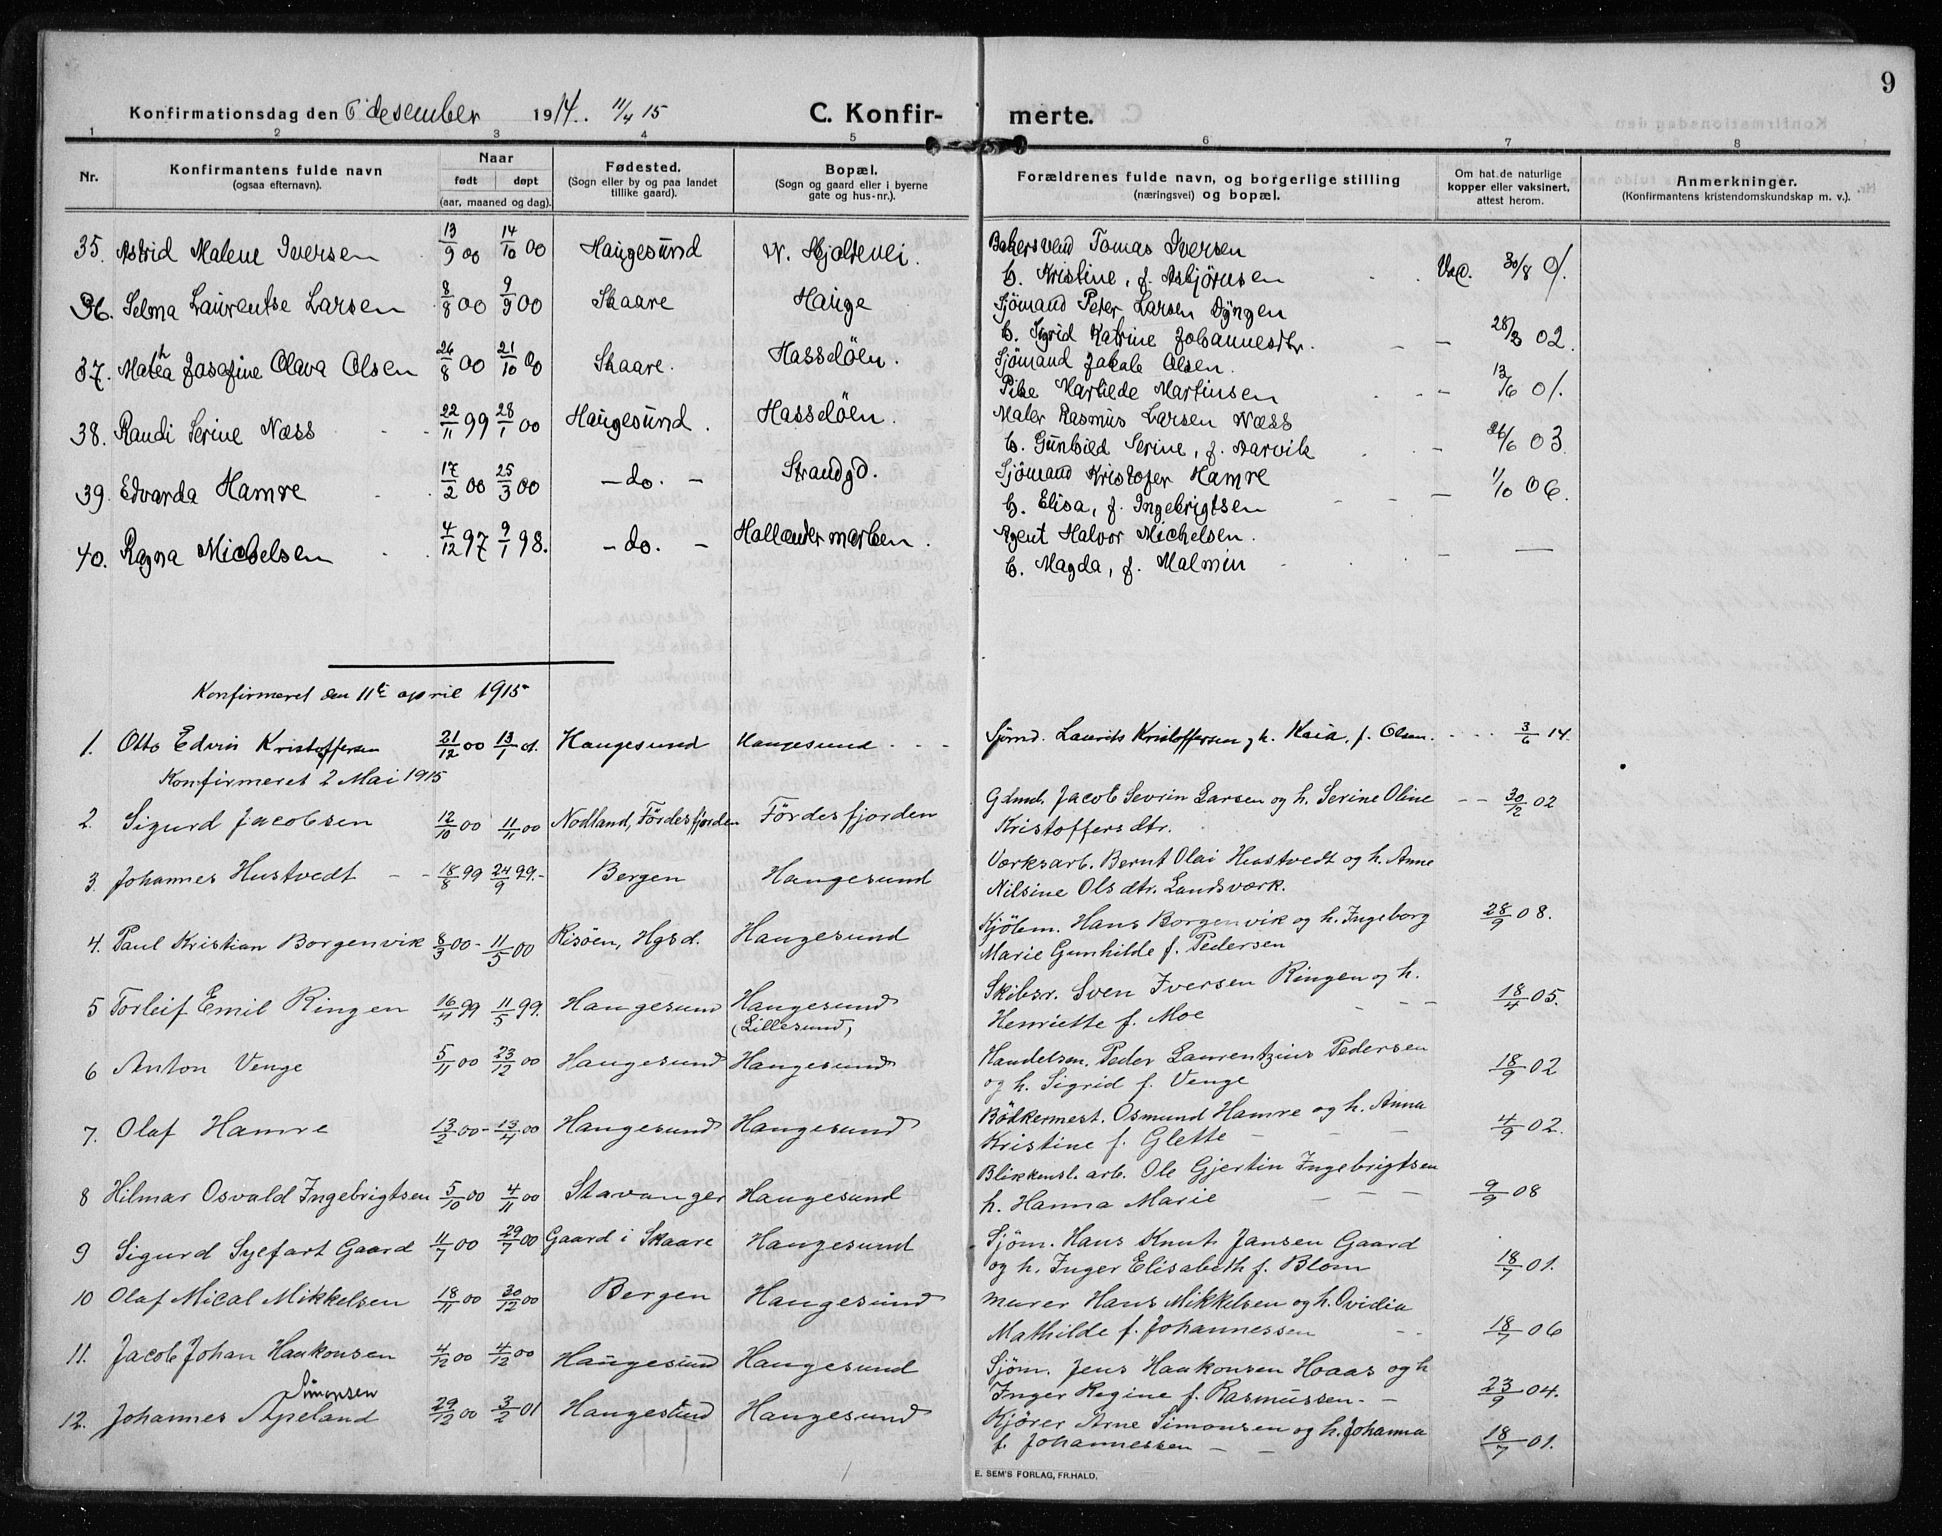 9
Konfirmationsdag den 6 desember 1914. 11/4 15 C. Konfirmerte.
1 2 3 4 5 6 7 8
Nr. Konfirmantens fulde navn (ogsaa efternavn). Naar født døpt (aar, maaned og dag). Fødested. (Sogn eller by og paa landet tillike gaard). Bopæl. (Sogn og gaard eller i byerne gate og hus-nr.). Forældrenes fulde navn, og borgerlige stilling (næringsvei) og bopæl. Om hat. de naturlige kopper eller vaksinert, attest herom. Anmerkninger. (Konfirmantens kristendomskundskap m. v.).
35. Astrid Malene Iversen 13/9 00 14/10 00 Haugesund N. Hjoltevei. Bakersvend Tomas Iversen
h. Kristine, f. Asbjörnsen Vac. 30/8 01.
36. Selma Laurentse Larsen 8/8 00 9/9 00 Skaare Hauge Sjömand Peter Larsen Dyngen
h. Sigrid Katrine Johannesdtr. - - 28/3 02.
37. Mathea Josefine Olava Olsen 26/8 00 21/10 00 Skaare. Hasseløen. Sjömand Jakob Olsen.
Pike Martilde Martinsen - 13/6 01.
38. Randi Serine Næss 22/11 99 28/1 00 Haugesund. Hasseløen. Maler Rasmus Larsen Næss
h. Gunhild Serine, f. Aarvik - 26/6 03
39. Edvarda Hamre 17/2 00 25/3 00 - do. - Strandgd. Sjömand Kristofer Hamre
h. Elisa, f. Ingebrigtsen - 1/10 06.
40. Ragna Michelsen 4/12 97 9/1 98. - do. - Hollendermarken. Agent Halvor Michelsen.
h. Magda, f. Malmin - —
Konfirmeret den 11te april 1915
1. Otto Edvin Kristoffersen 21/12 00 13/1 01. Haugesund Haugesund - - Sjömd. Laurits Kristoffersen og h. Kaia, f. Olsen. - - - 3/6 14.
Konfirmeret 2 Mai 1915
2. Sigurd Jacobsen 12/10 00 11/11 00 Nodland, Fördesfjorden Fördesfjorden Gdmd. Jacob Sevrin Larsen og h. Serine Oline - - 30/2 02
Kristoffersdtr.
3. Johannes Hustvedt - - 18/8 99 24/9 99.- Bergen Haugesund Værksarb. Bernt Olai Hustvedt og h. Anne
Nilsine Olsdtr. Landsværk.
4. Paul Kristian Borgenvik 8/3 00 - 11/5 00 Risöen, Hgsd. Haugesund Kjölem. Hans Borgenvik og h. Ingeborg 28/9 08.
Marie Gunhilde f. Pedersen
5 Torleif Emil Ringen 16/4 99 11/5 99. Haugesund Haugesund Skibsr. Sven Iversen Ringen og h.
(Lillesund) Henriette f. Moe - - - 18/4 05.
6 Anton Venge 5/11 00 23/12 00 Haugesund Haugesund Handelsm. Peder Laurentzius Pedersen
og h. Sigrid f. Venge 18/9 02
7. Olaf Hamre 13/2 00 - 13/4 00 Haugesund Haugesund Bödkermest. Osmund Hamre og h. Anna
Kristine f. Glette - - - 4/9 02.
8 Hilmar Osvald Ingebrigtsen 5/10 00 4/11 00 Stavanger Haugesund Blikkensl. arb. Ole Gjertin Ingebrigtsen
h. Hanna Marie - - - 9/9 08
9 Sigurd Syefart Gaard 11/7 00 29/7 00 Gaard i Skaare Haugesund Sjöm. Hans Knut Jansen Gaard
og h. Inger Elisabeth f. Blom 18/7 01.
10 Olaf Mical Mikkelsen 18/11 00 30/12 00 Bergen Haugesund Murer Hans Mikkelsen og h. Ovidia
Mathilde f. Johannessen - - 18/7 06
11. Jacob Johan Haakonsen 4/12 00 4/12 00 Haugesund Haugesund Sjöm. Jens Haakonsen Hoaas og h
Inger Regine f. Rasmussen. - 23/9 04.
12. Johannes Simonsen Apeland 29/12 00 3/2 01 Haugesund Haugesund Kjörer Arne Simonsen og h. Johanna
f. Johannessen - - 18/7 01.
E. SEM'S FORLAG, FR.HALD.